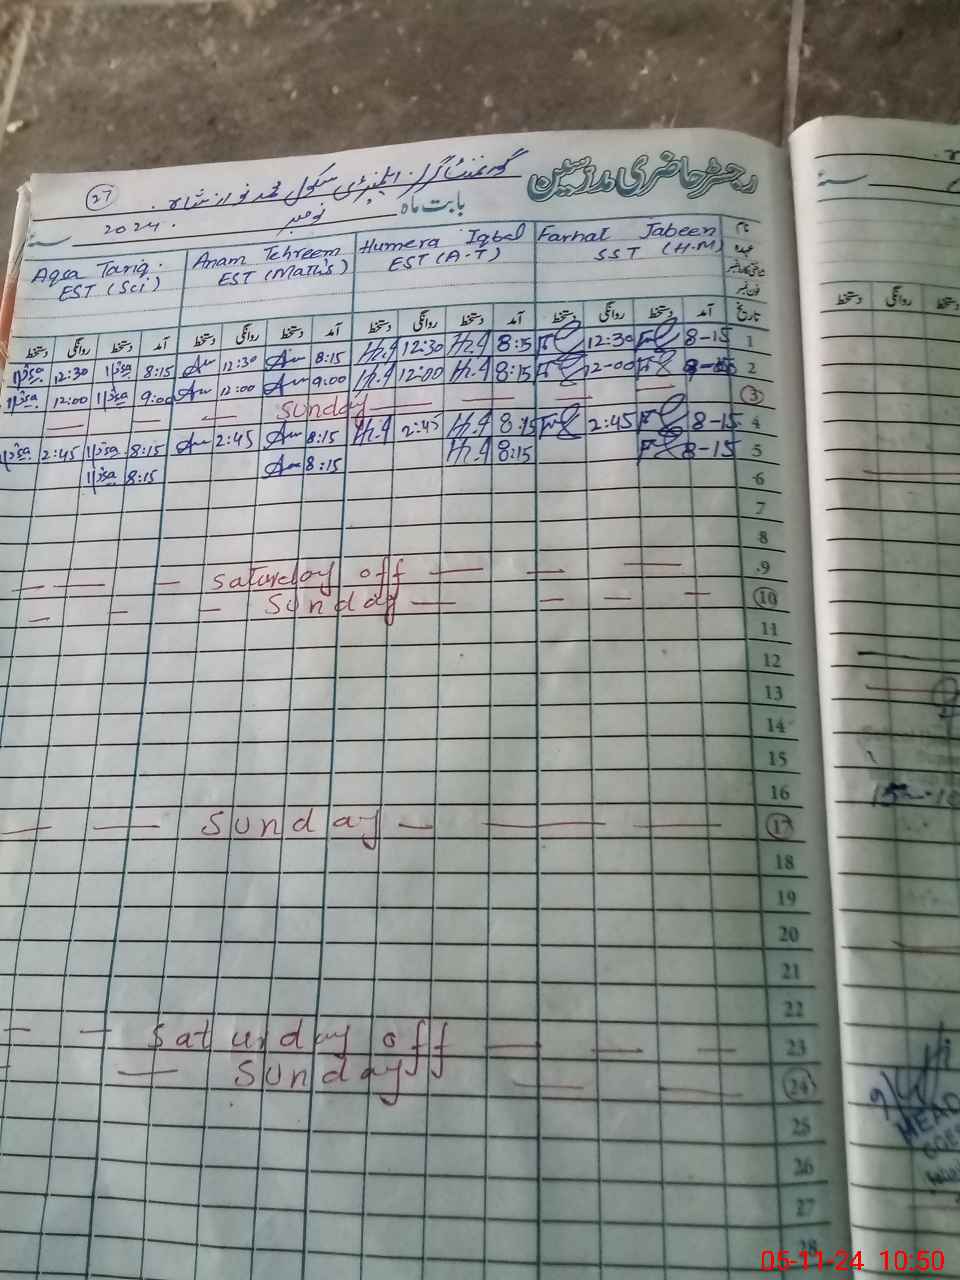 رجسٹر حاضری مدرسین
27 گورنمنٹ گرلز ایلیمنٹری سکول محمد نواز شاہ
بابت ماہ نومبر 2024 سنہ
نام Farhat Jabeen Humera Iqbal Anam Tehreem Aqsa Tariq.
عہدہ SST (H.M) EST (A.T) EST (Maths) EST (Sci)
تاریخ آمد دستخط روانگی دستخط آمد دستخط روانگی دستخط آمد دستخط روانگی دستخط آمد دستخط روانگی دستخط
1 8-15 12:30 8:15 H.A 12:30 H.A 8:15 Am 12:30 Am 8:15 Aqsa 12:30 Aqsa
2 12-00 8:15 H.A 12:00 H.A 9:00 Am 12:00 Am 9:00 Aqsa 12:00 Aqsa
3 Sunday
4 8-15 2:45 8:15 H.A 2:45 H.A 8:15 Am 2:45 Am 8:15 Aqsa 2:45 Aqsa
5 8-15 8:15 H.A 8:15 Am 8:15 Aqsa
6
7
8
9 Saturday off
10 Sunday
11
12
13
14
15
16
17 Sunday
18
19
20
21
22
23 Saturday off
24 Sunday
25
26
27
28
سنہ
دستخط روانگی دستخط
HEAD
05-11-24 10:50